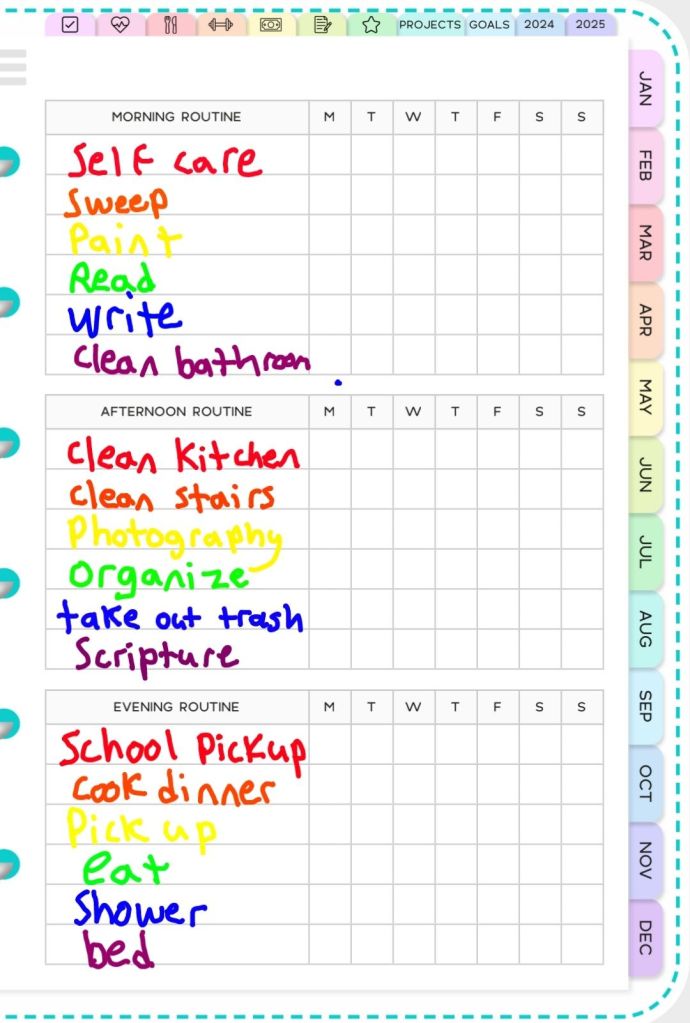 PROJECTS GOALS 2024 2025
JAN
FEB
MAR
APR
MAY
JUN
JUL
AUG
SEP
OCT
NOV
DEC
MORNING ROUTINE M T W T F S S
Self care
Sweep
Paint
Read
Write
Clean bathroom
AFTERNOON ROUTINE M T W T F S S
Clean Kitchen
Clean stairs
Photography
Organize
take out trash
Scripture
EVENING ROUTINE M T W T F S S
School Pickup
Cook dinner
Pick up
eat
Shower
bed